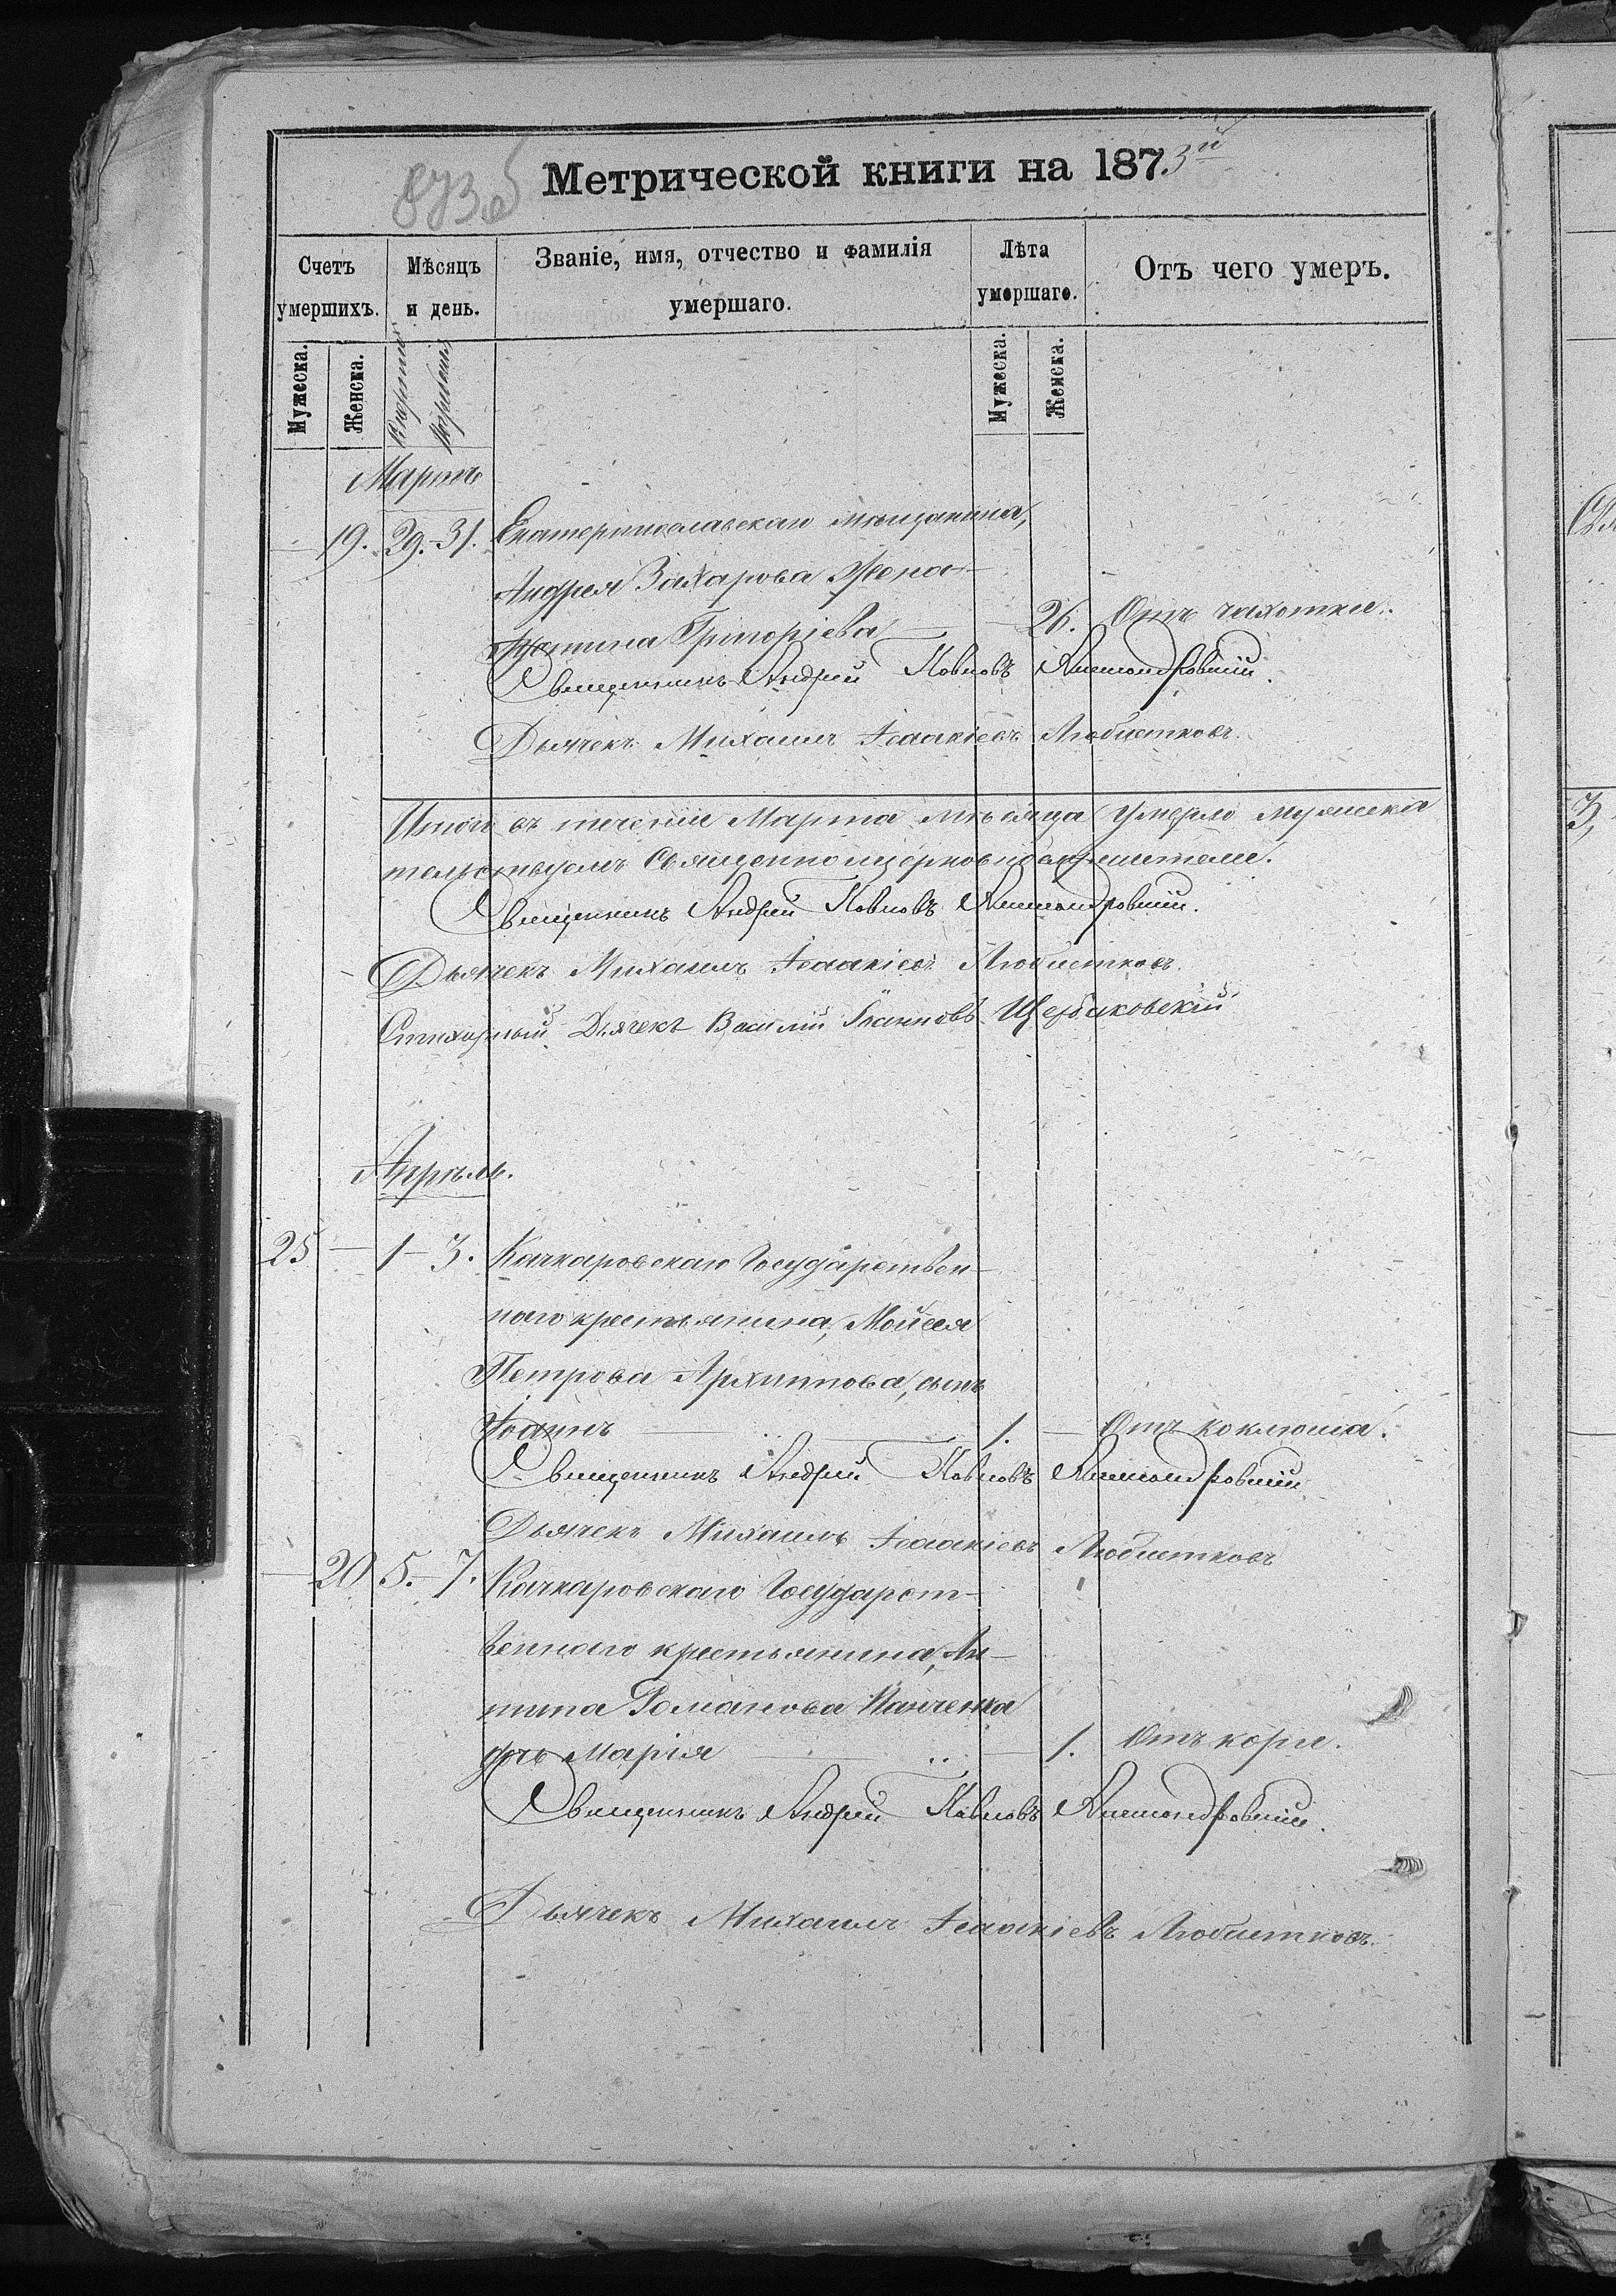 873 б
Метрической книги на 1873й
Счетъ умершихъ.
Мѣсяцъ и день.
Званіе, имя, отчество и фамилія умершаго.
Лѣта умершаго.
Отъ чего умеръ.
Мужеска.
Женска.
Смерти
Погребенія
Мужеска.
Женска.
Мартъ
19. 29.-31. Екатеринославскаго мѣщанина,
Андрея Захарова жена
Григоріева 26. Отъ чахотки.
Священникъ Андрей Павловъ
Дьячекъ Михаилъ Ісаакіевъ Любистковъ.
Итого въ теченіи Марта мѣсяца умерло мужеска
Священно церковнослужители.
Священникъ Андрей Павловъ
Дьячекъ Михаилъ Ісаакіевъ Любистковъ.
Стихарный Дьячекъ Василій Іоанновъ Щербаковскій
Апрѣль.
25 — 1 - 3. Качкаровскаго Государствен-
наго крестьянина, Мойсея
Петрова Архиппова, сынъ
Іоаннъ 1. — Отъ коклюша.
Священникъ Андрей Павловъ
Дьячекъ Михаилъ Ісаакіевъ Любистковъ
— 20 5.-7. Качкаровскаго Государст-
веннаго крестьянина, Ан-
типа Романова Панченка
дочь Марія — 1. Отъ кори.
Священникъ Андрей Павловъ
Дьячекъ Михаилъ Ісаакіевъ Любистковъ.